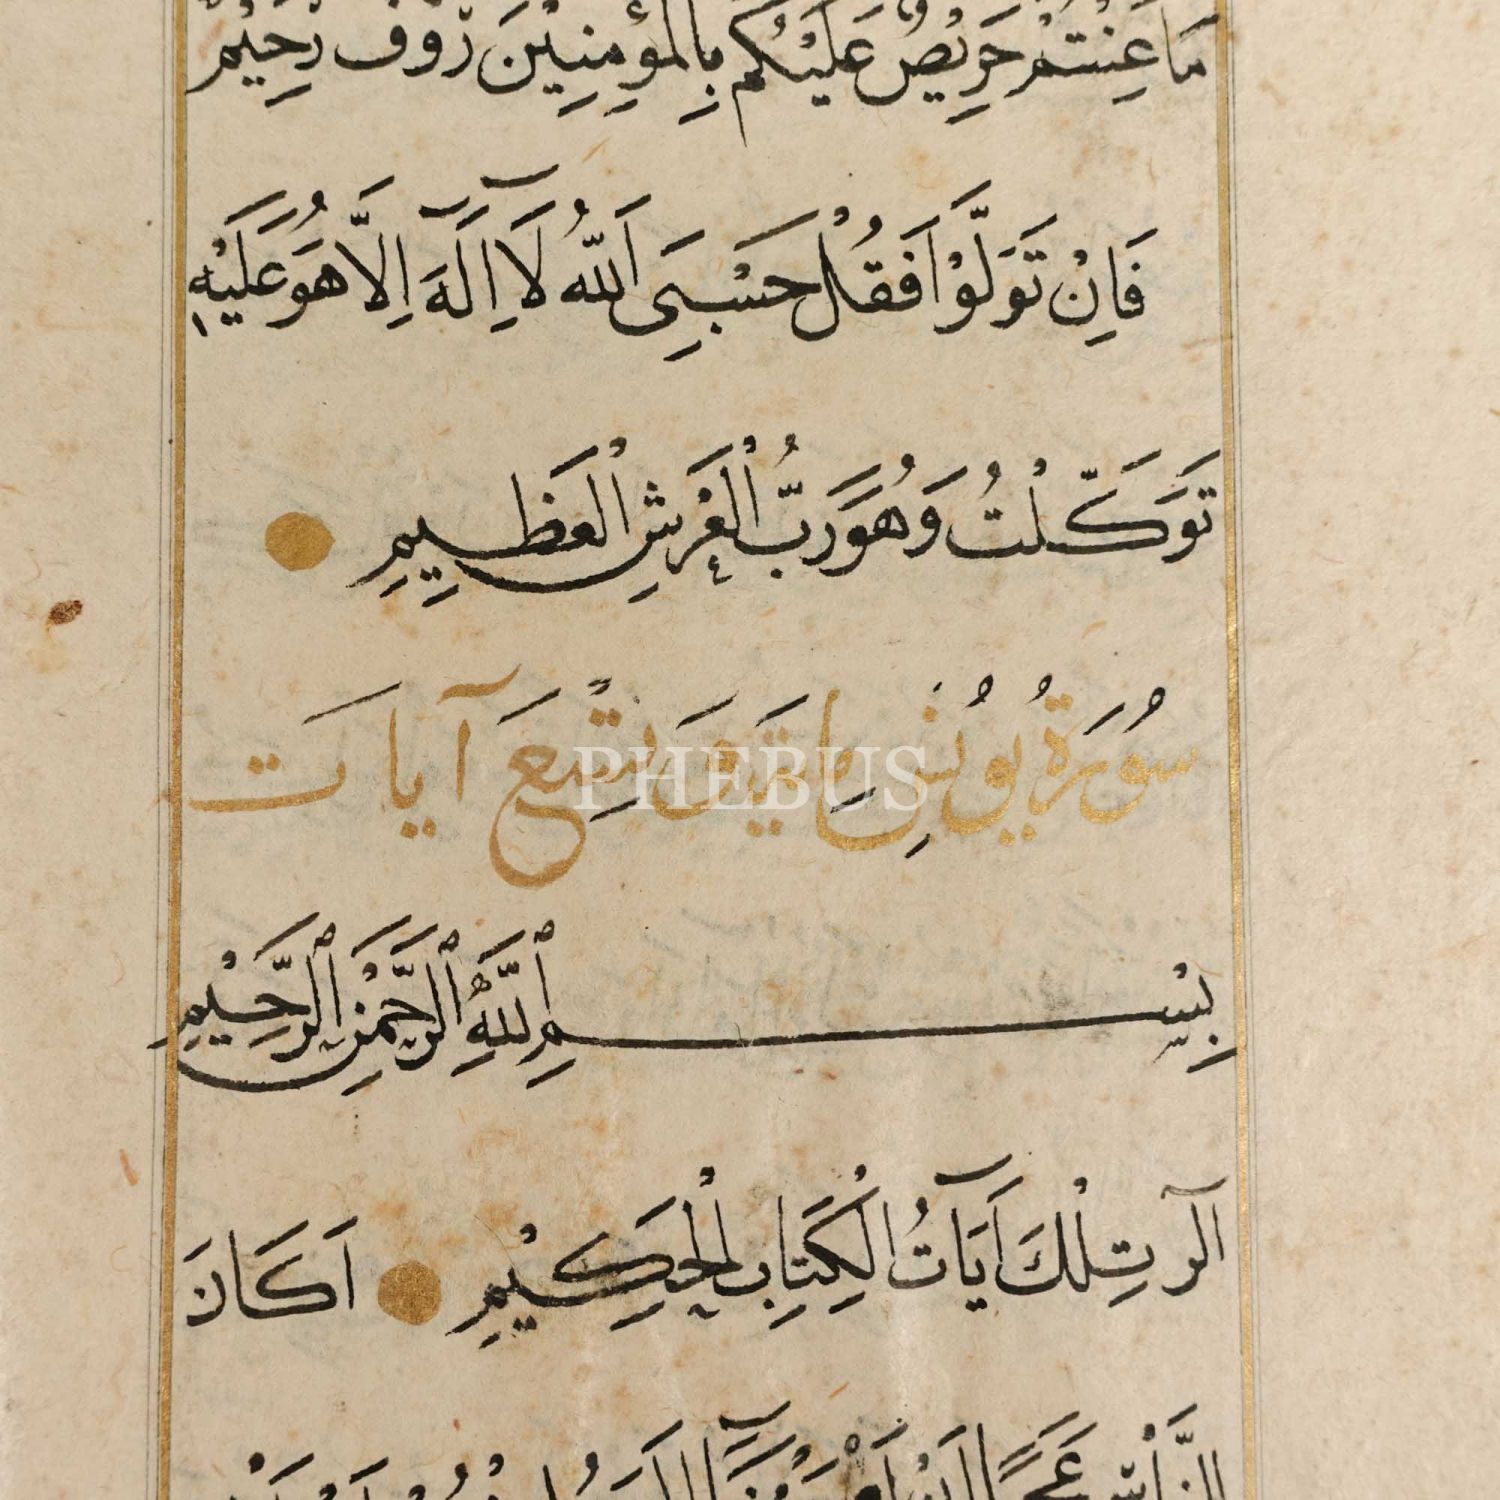 مَا عَنِتُّمْ حَرِيْصٌ عَلَيْكُمْ بِالْمُؤْمِنِيْنَ رَؤُوْفٌ رَحِيْمٌ
فَاِنْ تَوَلَّوْا فَقُلْ حَسْبِىَ اَللّٰهُ لَآ اِلَهَ اِلَّا هُوَ عَلَيْهِ
تَوَكَّلْتُ وَهُوَ رَبُّ الْعَرْشِ الْعَظِيمِ
سُورَةُ يُونُسَ مِائَة وَتِسْعَ آيَات
PHEBUS
بِسْمِ ٱللَّهِ ٱلرَّحْمٰنِ ٱلرَّحِيْمِ
الٓر تِلْكَ اٰيَاتُ الْكِتَابِ الْحَكِيْمِ اَكَانَ